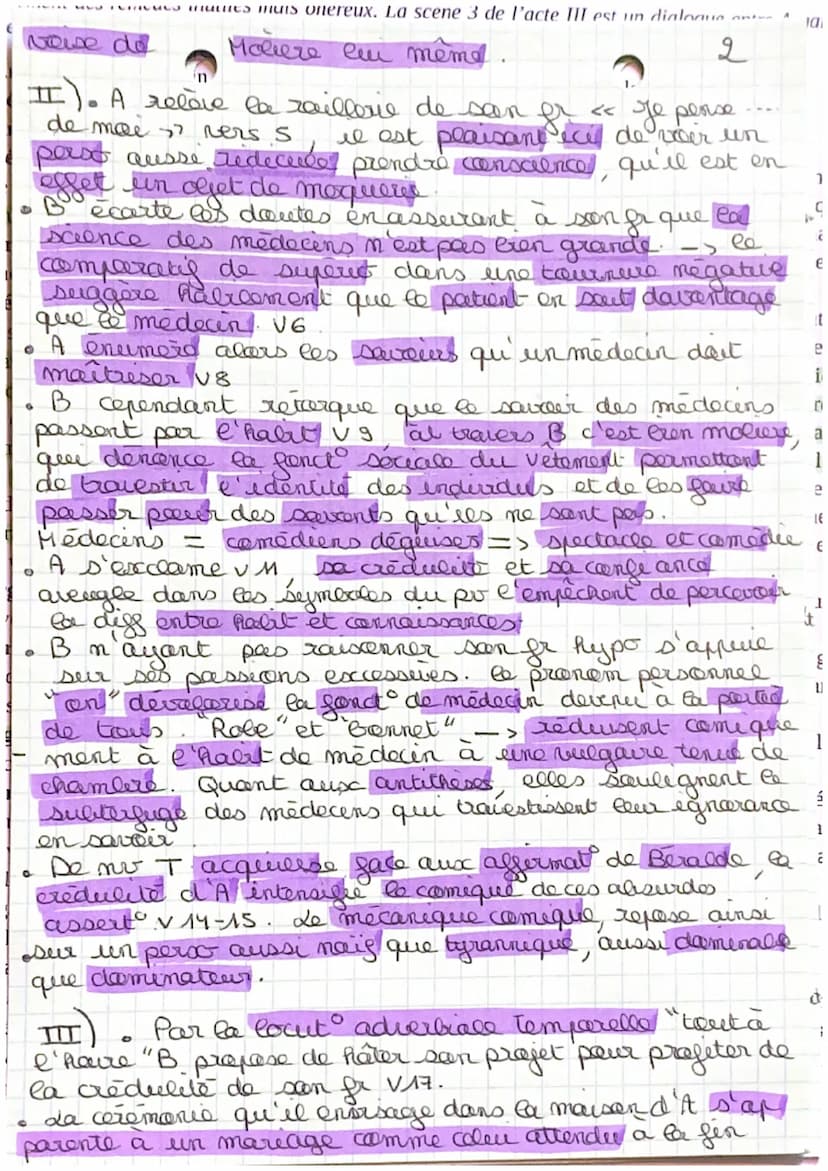 La scène 3 de l'acte III est un dialogue
voix de Molière lui même. 2
II). A relève la raillerie de son fr << Je pense ....
de moi >> vers 5 il est plaisant ici de voir un
perso aussi ridicule prendre conscience, qu'il est en
effet un objet de moquerie
• B écarte les doutes en assurant à son fr que la
science des médecins n'est pas bien grande. -> le
comparatif de supério dans une tournure négative
suggère habilement que le patient en sait davantage
que le médecin. V6
• A énumère alors les savoirs qu'un médecin doit
maîtriser V8
• B cependant rétorque que le savoir des médecins
passent par l'habit V9 al travers B c'est bien molière,
qui dénonce la fonct° sociale du vêtement permettant
de travestir l'identité des individus et de les faire
passer pour des savants qu'ils ne sont pas.
Médecins = comédiens déguisés => spectacle et comédie
• A s'exclame V11 sa crédulité et sa confiance
aveugle dans les symboles du pv l'empêchent de percevoir
la diff entre habit et connaissances
• B n'ayant pas raisonner son fr hypo s'appuie
sur ses passions excessives. le pronom personnel
"on" dévalorise la fonct° de médecin devenu à la portée
de tous. "Robe" et "bonnet" -> réduisent comique
ment à l'habit de médecin à une vulgaire tenue de
chambre. Quant aux antithèses, elles soulignent le
subterfuge des médecins qui travestissent leur ignorance
en savoir
• De nv T acquiesse face aux affirmat° de Béralde, la
crédulité d'A intensifie le comique de ces absurdes
assert° V 14-15. Le mécanique comique, repose ainsi
sur un perso aussi naïf que tyrannique, aussi dominable
que dominateur.
III) • Par la locut° adverbiale temporelle "tout à
l'heure" B propose de hâter son projet pour profiter de
la crédulité de son fr V17.
• La cérémonie qu'il envisage dans la maison d'A s'ap
parente à un mariage comme celui attendu à la fin